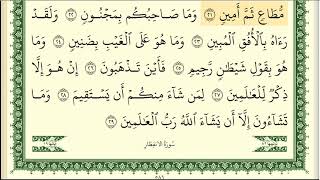 مُّطَاعٍ ثَمَّ أَمِينٍ ٢١ وَمَا صَاحِبُكُم بِمَجْنُونٍ ٢٢ وَلَقَدْ
رَءَاهُ بِالْأُفُقِ الْمُبِينِ ٢٣ وَمَا هُوَ عَلَى الْغَيْبِ بِضَنِينٍ ٢٤ وَمَا
هُوَ بِقَوْلِ شَيْطَانٍ رَّجِيمٍ ٢٥ فَأَيْنَ تَذْهَبُونَ ٢٦ إِنْ هُوَ إِلَّا
ذِكْرٌ لِّلْعَالَمِينَ ٢٧ لِمَن شَاءَ مِنكُمْ أَن يَسْتَقِيمَ ٢٨ وَمَا
تَشَاءُونَ إِلَّا أَن يَشَاءَ اللَّهُ رَبُّ الْعَالَمِينَ ٢٩
سُورَةُ الِانفِطَارِ
٥٨٦